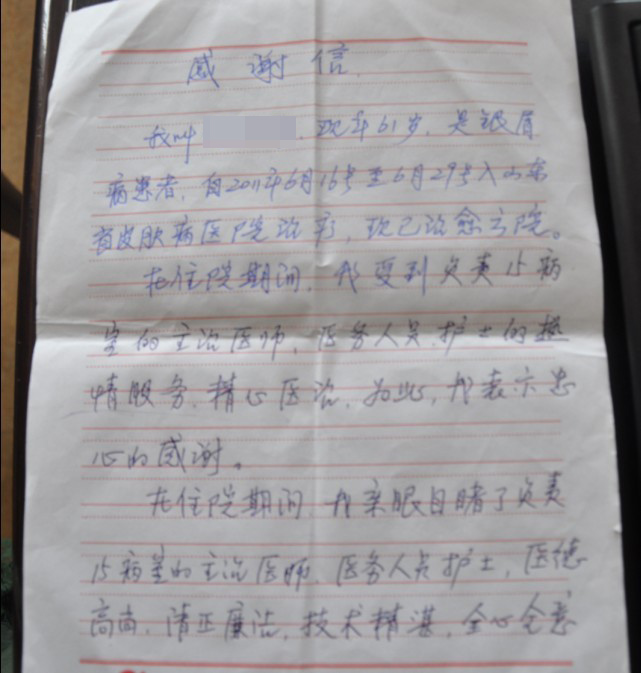 感谢信
我叫 现年61岁，是银屑
病患者，自2011年6月16号至6月29号入山东
省皮肤病医院治疗，现已治愈出院。
在住院期间，我受到负责15病
室的主治医师、医务人员护士的热
情服务、精心医治，为此，我表示忠
心的感谢。
在住院期间，我亲眼目睹了负责
15病室的主治医师、医务人员护士，医德
高尚，清正廉洁，技术精湛，全心全意